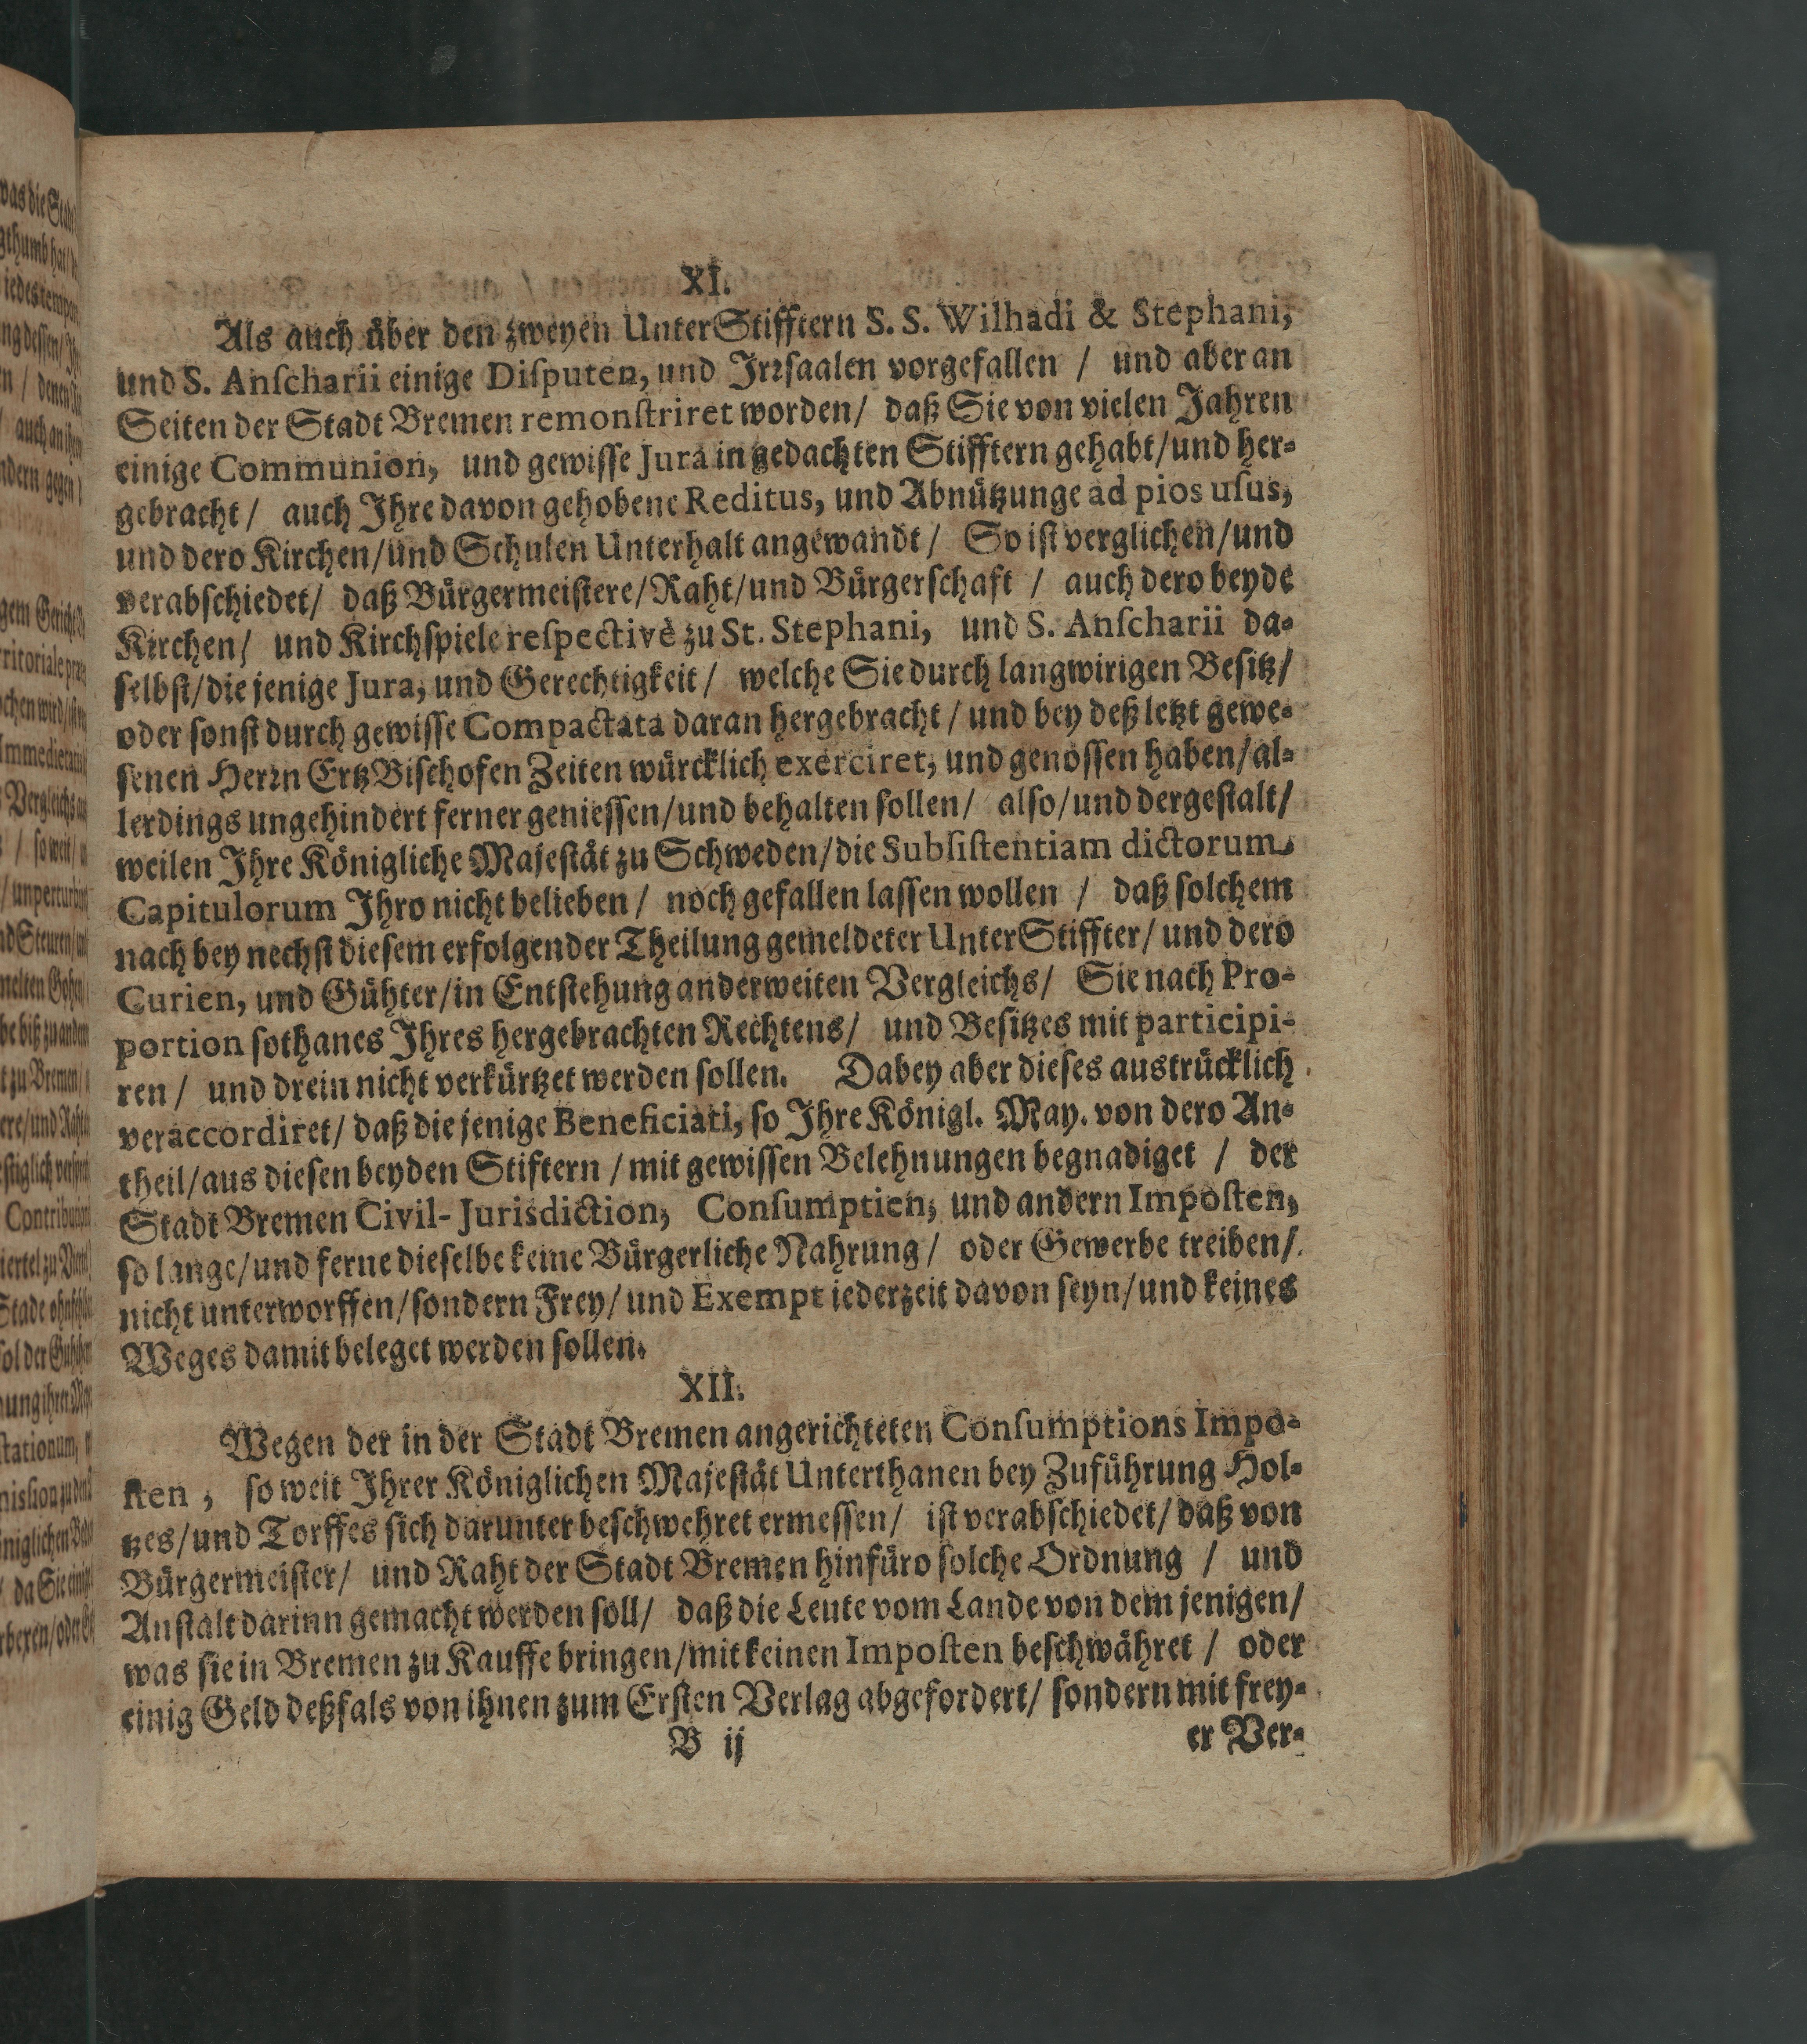 XI.
Als auch über den zweyen UnterStifftern S. S. Wilhadi & Stephani,
und S. Anſcharii einige Diſputen, und Jrꝛſaalen vorgefallen / und aber an
Seiten der Stadt Bremen remonſtriret worden/ daß Sie von vielen Jahren
einige Communion, und gewiſſe Jura in gedachten Stifftern gehabt/und her-
gebracht/ auch Jhre davon gehobene Reditus, und Abnützunge ad pios uſus,
und dero Kirchen/und Schulen Unterhalt angewandt/ So iſt verglichen/und
verabſchiedet/ daß Bürgermeiſtere/Raht/und Bürgerſchaft / auch dero beyde
Kirchen/ und Kirchſpiele reſpectivè zu St. Stephani, und S. Anſcharii da-
ſelbſt/die jenige Jura, und Gerechtigkeit/ welche Sie durch langwirigen Beſitz/
oder ſonſt durch gewiſſe Compactata daran hergebracht/und bey deß letzt gewe-
ſenen Herꝛn ErtzBiſchofen Zeiten würcklich exerciret, und genoſſen haben/al-
lerdings ungehindert ferner genieſſen/und behalten ſollen/ alſo/und dergeſtalt/
weilen Jhre Königliche Majeſtät zu Schweden/die Subſiſtentiam dictorum
Capitulorum Jhro nicht belieben/ noch gefallen laſſen wollen / daß ſolchem
nach bey nechſt dieſem erfolgender Theilung gemeldeter UnterStiffter/ und dero
Curien, und Gühter/in Entſtehung anderweiten Vergleichs/ Sie nach Pro-
portion ſothanes Jhres hergebrachten Rechtens/ und Beſitzes mit participi-
ren/ und drein nicht verkürtzet werden ſollen. Dabey aber dieſes austrücklich
veraccordiret/ daß die jenige Beneficiati, ſo Jhre Königl. May. von dero An-
theil/aus dieſen beyden Stiftern/mit gewiſſen Belehnungen begnadiget / der
Stadt Bremen Civil-Jurisdiction, Conſumptien, und andern Impoſten,
ſo lange/und ferne dieſelbe keine Bürgerliche Nahrung/ oder Gewerbe treiben/
nicht unterworffen/ſondern Frey/und Exempt iederzeit davon ſeyn/und keines
Weges damit beleget werden ſollen.
XII.
Wegen der in der Stadt Bremen angerichteten Conſumptions Impo-
ſten, ſo weit Jhrer Königlichen Majeſtät Unterthanen bey Zuführung Hol-
tzes/und Torffes ſich darunter beſchwehret ermeſſen/ iſt verabſchiedet/daß von
Bürgermeiſter/ und Raht der Stadt Bremen hinfüro ſolche Ordnung / und
Anſtalt darinn gemacht werden ſoll/ daß die Leute vom Lande von dem jenigen/
was ſie in Bremen zu Kauffe bringen/mit keinen Impoſten beſchwähret / oder
einig Geld deßfals von ihnen zum Erſten Verlag abgefordert/ ſondern mit frey-
B ij er Ver-